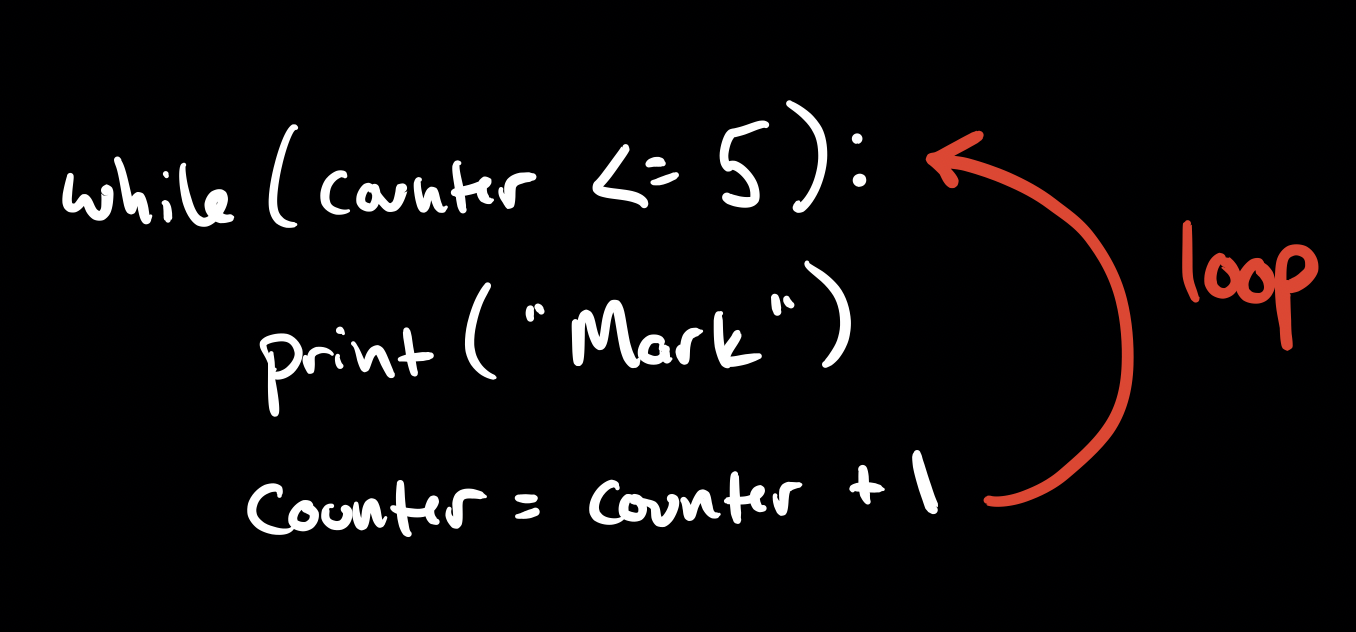 while (counter <= 5):
loop
print ("Mark")
counter = counter + 1